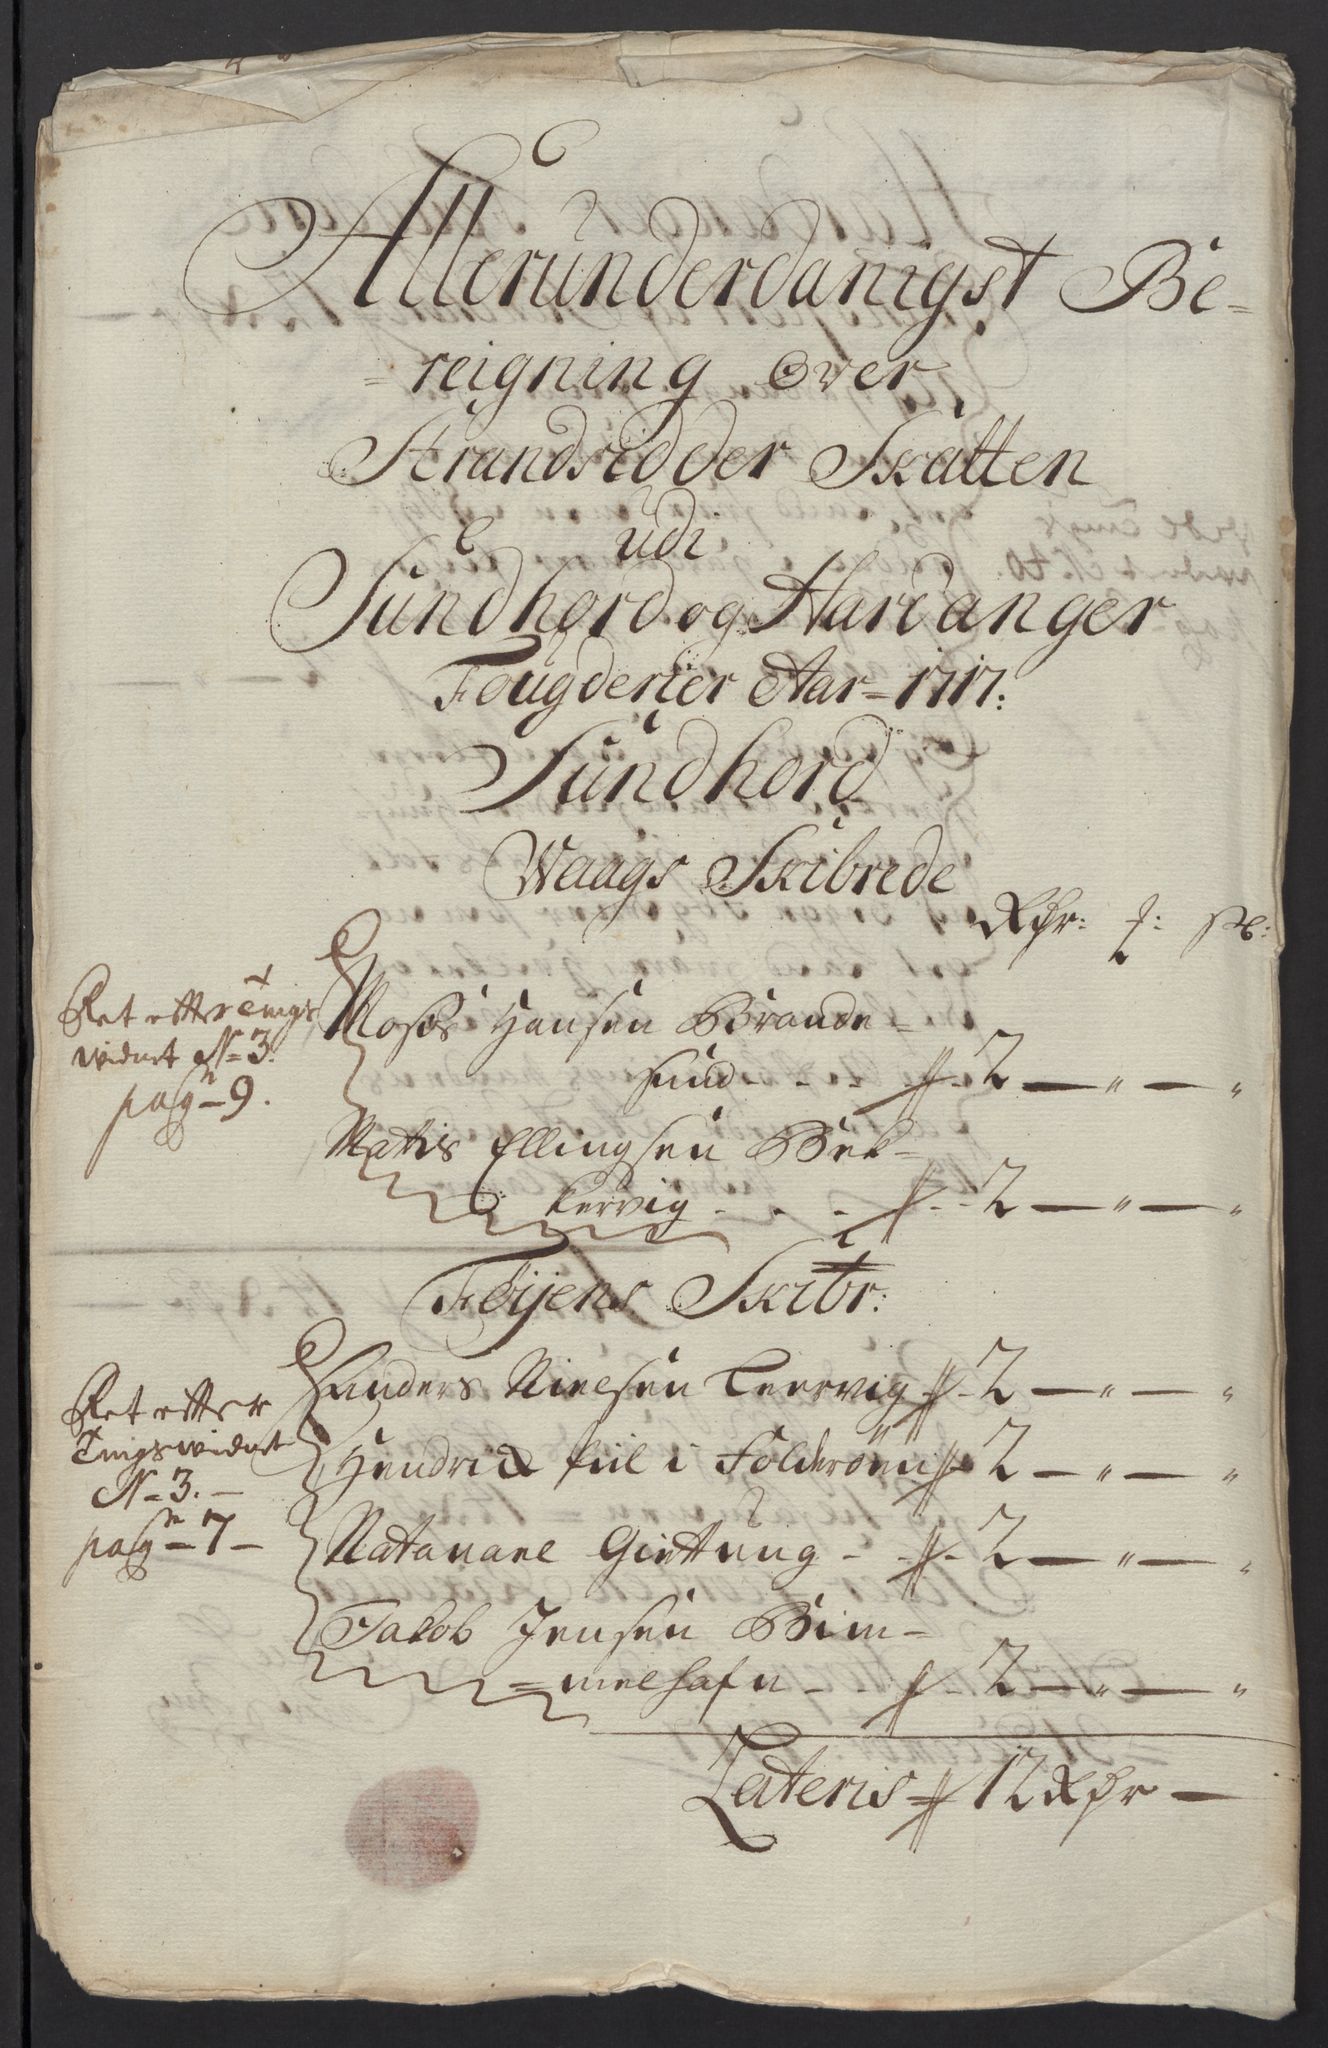 Allerunderdanigst Be-
=reigning Over
Strandsidder Skatten
udi
Sundhord og Hardanger
Fougderier Aar=1717:
Sundhord
Waags Skibrede
Rdr: ș: sk:
Ret efter Tings
widnet N=3.
pagn=9.
Moses Hansen Brande=
sund - - - 2 — " — "
Matis Ellingsen Bek=
kervig - - - 2 — " — "
Føyens Skibr:
Ret efter
Tingswidnet
N=3.—
pagn=7—
Anders Nielsen Leervig - 2 — " — "
Hendrick Piil i Folderøen - 2 — " — "
Natanael Giettung - - 2 — " — "
Jacob Jensen Bim=
=melhafn - - 2 — " — "
Lateris = 12 Rdr —